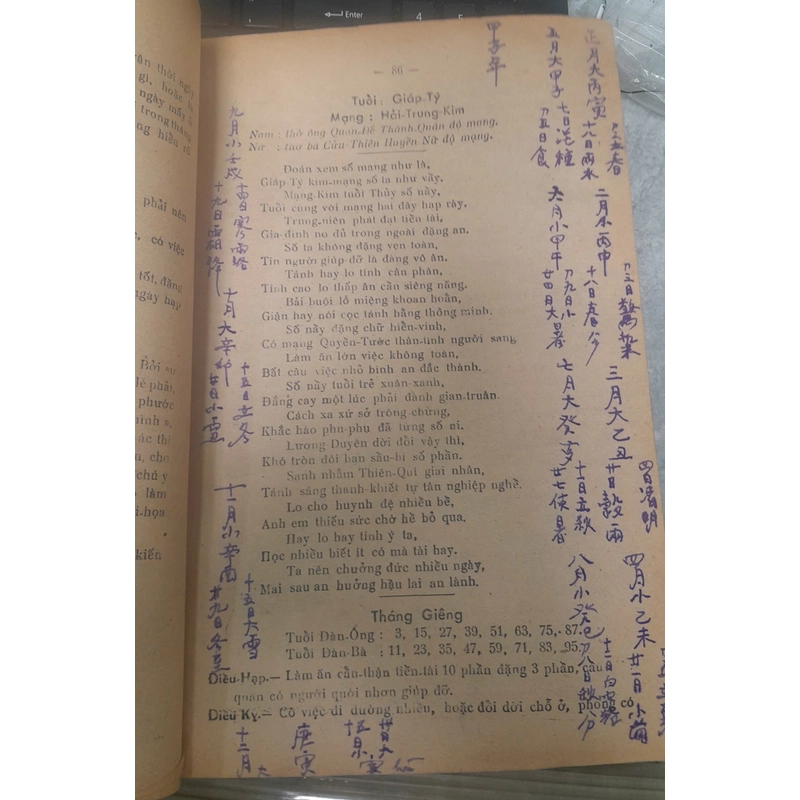 — 86 —
Tuổi : Giáp-Tý
Mạng : Hải-Trung-Kim
Nam : thờ ông Quan-Đế Thánh-Quân độ mạng.
Nữ : thờ bà Cửu-Thiên Huyền Nữ độ mạng.
Đoán xem số mạng như là,
Giáp-Tý kim-mạng số ta như vầy,
Mạng-Kim tuổi Thủy số nầy,
Tuổi cùng với mạng hai đây hạp rày,
Trung-niên phát đạt tiền tài,
Gia-đình no đủ trong ngoài đặng an.
Số ta không đặng vẹn toàn,
Tin người giúp đỡ là đàng vô ân.
Tánh hay lo tính cân phân,
Tính cao lo thấp ân cần siêng năng.
Bải buội lỗ miệng khoan hoăn,
Giận hay nói cọc tánh hằng thông minh.
Số nầy đặng chữ hiển-vinh,
Có mạng Quyền-Tước thân-tình người sang
Làm ăn lớn việc không toàn,
Bất câu việc nhỏ bình an đắc thành.
Số nầy tuổi trẻ xuân-xanh,
Đắng cay một lúc phải đành gian-truân.
Cách xa xứ sở trông-chừng,
Khắc hào phu-phụ đã từng số ni.
Lương-Duyên dời đổi vậy thì,
Khó tròn đôi bạn sầu-bi số phần.
Sanh nhằm Thiên-Quí giai nhân,
Tánh sáng thanh-khiết tự tân nghiệp nghề.
Lo cho huynh đệ nhiều bề,
Anh em thiếu sức chớ hề bỏ qua.
Hay lo hay tính ý ta,
Học nhiều biết ít có mà tài hay.
Ta nên chưởng đức nhiều ngày,
Mai sau an hưởng hậu lai an lành.
Tháng Giêng
Tuổi Đàn-Ông : 3, 15, 27, 39, 51, 63, 75, 87.
Tuổi Đàn-Bà : 11, 23, 35, 47, 59, 71, 83, 95.
Điều-Hạp.— Làm ăn cẩn-thận tiền-tài 10 phần đặng 3 phần, cầu
quan có người quới nhơn giúp đỡ.
Điều Kỵ.— Có việc đi đường nhiều, hoặc đổi dời chỗ ở, phòng có
甲子年
正月大丙寅
十八日雨水
二月小丙申
十八日春分
三月大乙丑
廿日穀雨
四日清明
四月小乙未
五月大甲子
七日芒種
六月小甲午
廿四日大暑
七月大癸亥
十一日立秋
廿七處暑
八月小癸巳
九月小壬戌
十四日寒露
十九日霜降
十月大辛卯
十五日立冬
廿日小雪
十一月小辛酉
十五日大雪
廿九日冬至
十二月大
庚寅
ần thời ngày
gì, hoặc là
ngày mấy ở
trong tháng
phải nên
có việc
tốt, đặng
ngày hạp
Bởi sư
phước
làm
kiến
Enter
4
5